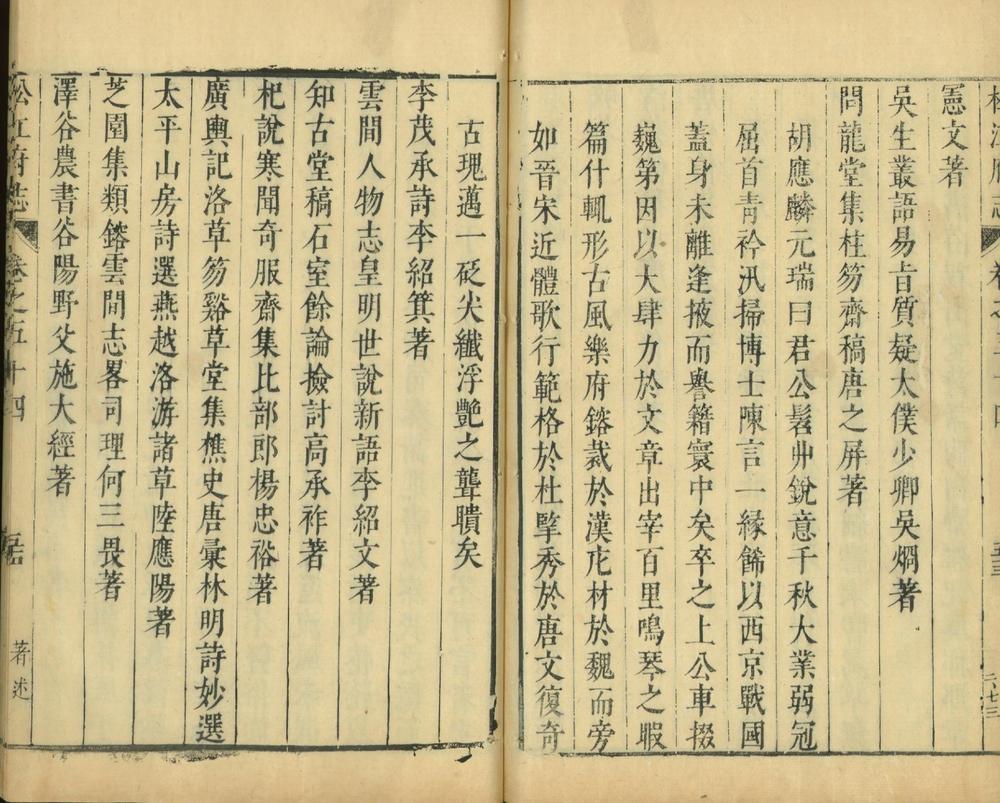 憲文著
吳生叢語易占質疑太僕少卿吳炯著
問龍堂集柱笏齋稿唐之屏著
胡應麟元瑞曰君公髫丱銳意千秋大業弱冠
屈首青衿汛掃博士陳言一緣飾以西京戰國
蓋身未離逢掖而譽籍寰中矣卒之上公車掇
巍第因以大肆力於文章出宰百里鳴琴之暇
篇什輒形古風樂府鎔裁於漢庀材於魏而旁
如晉宋近體歌行範格於杜擥秀於唐文復奇
古瑰邁一砭尖纖浮艷之聾聵矣
李茂承詩李紹箕著
雲間人物志皇明世說新語李紹文著
知古堂稿石室餘論撿討高承祚著
杞說寒聞奇服齋集比部郎楊忠裕著
廣輿記洛草笏谿草堂集樵史唐彙林明詩妙選
太平山房詩選燕越洛游諸草陸應陽著
芝園集類鎔雲間志畧司理何三畏著
澤谷農書谷陽野父施大經著
松江府志 卷之五十四 著述